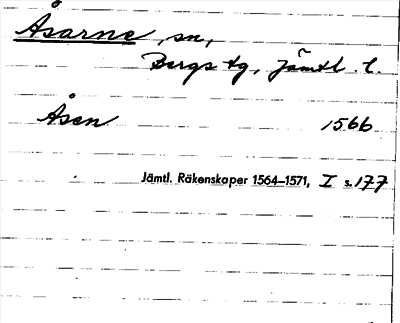 Åsarne, sn,
Bergs tg, Jämtl. l.
Åsen 1566
Jämtl. Räkenskaper 1564–1571, I s. 177